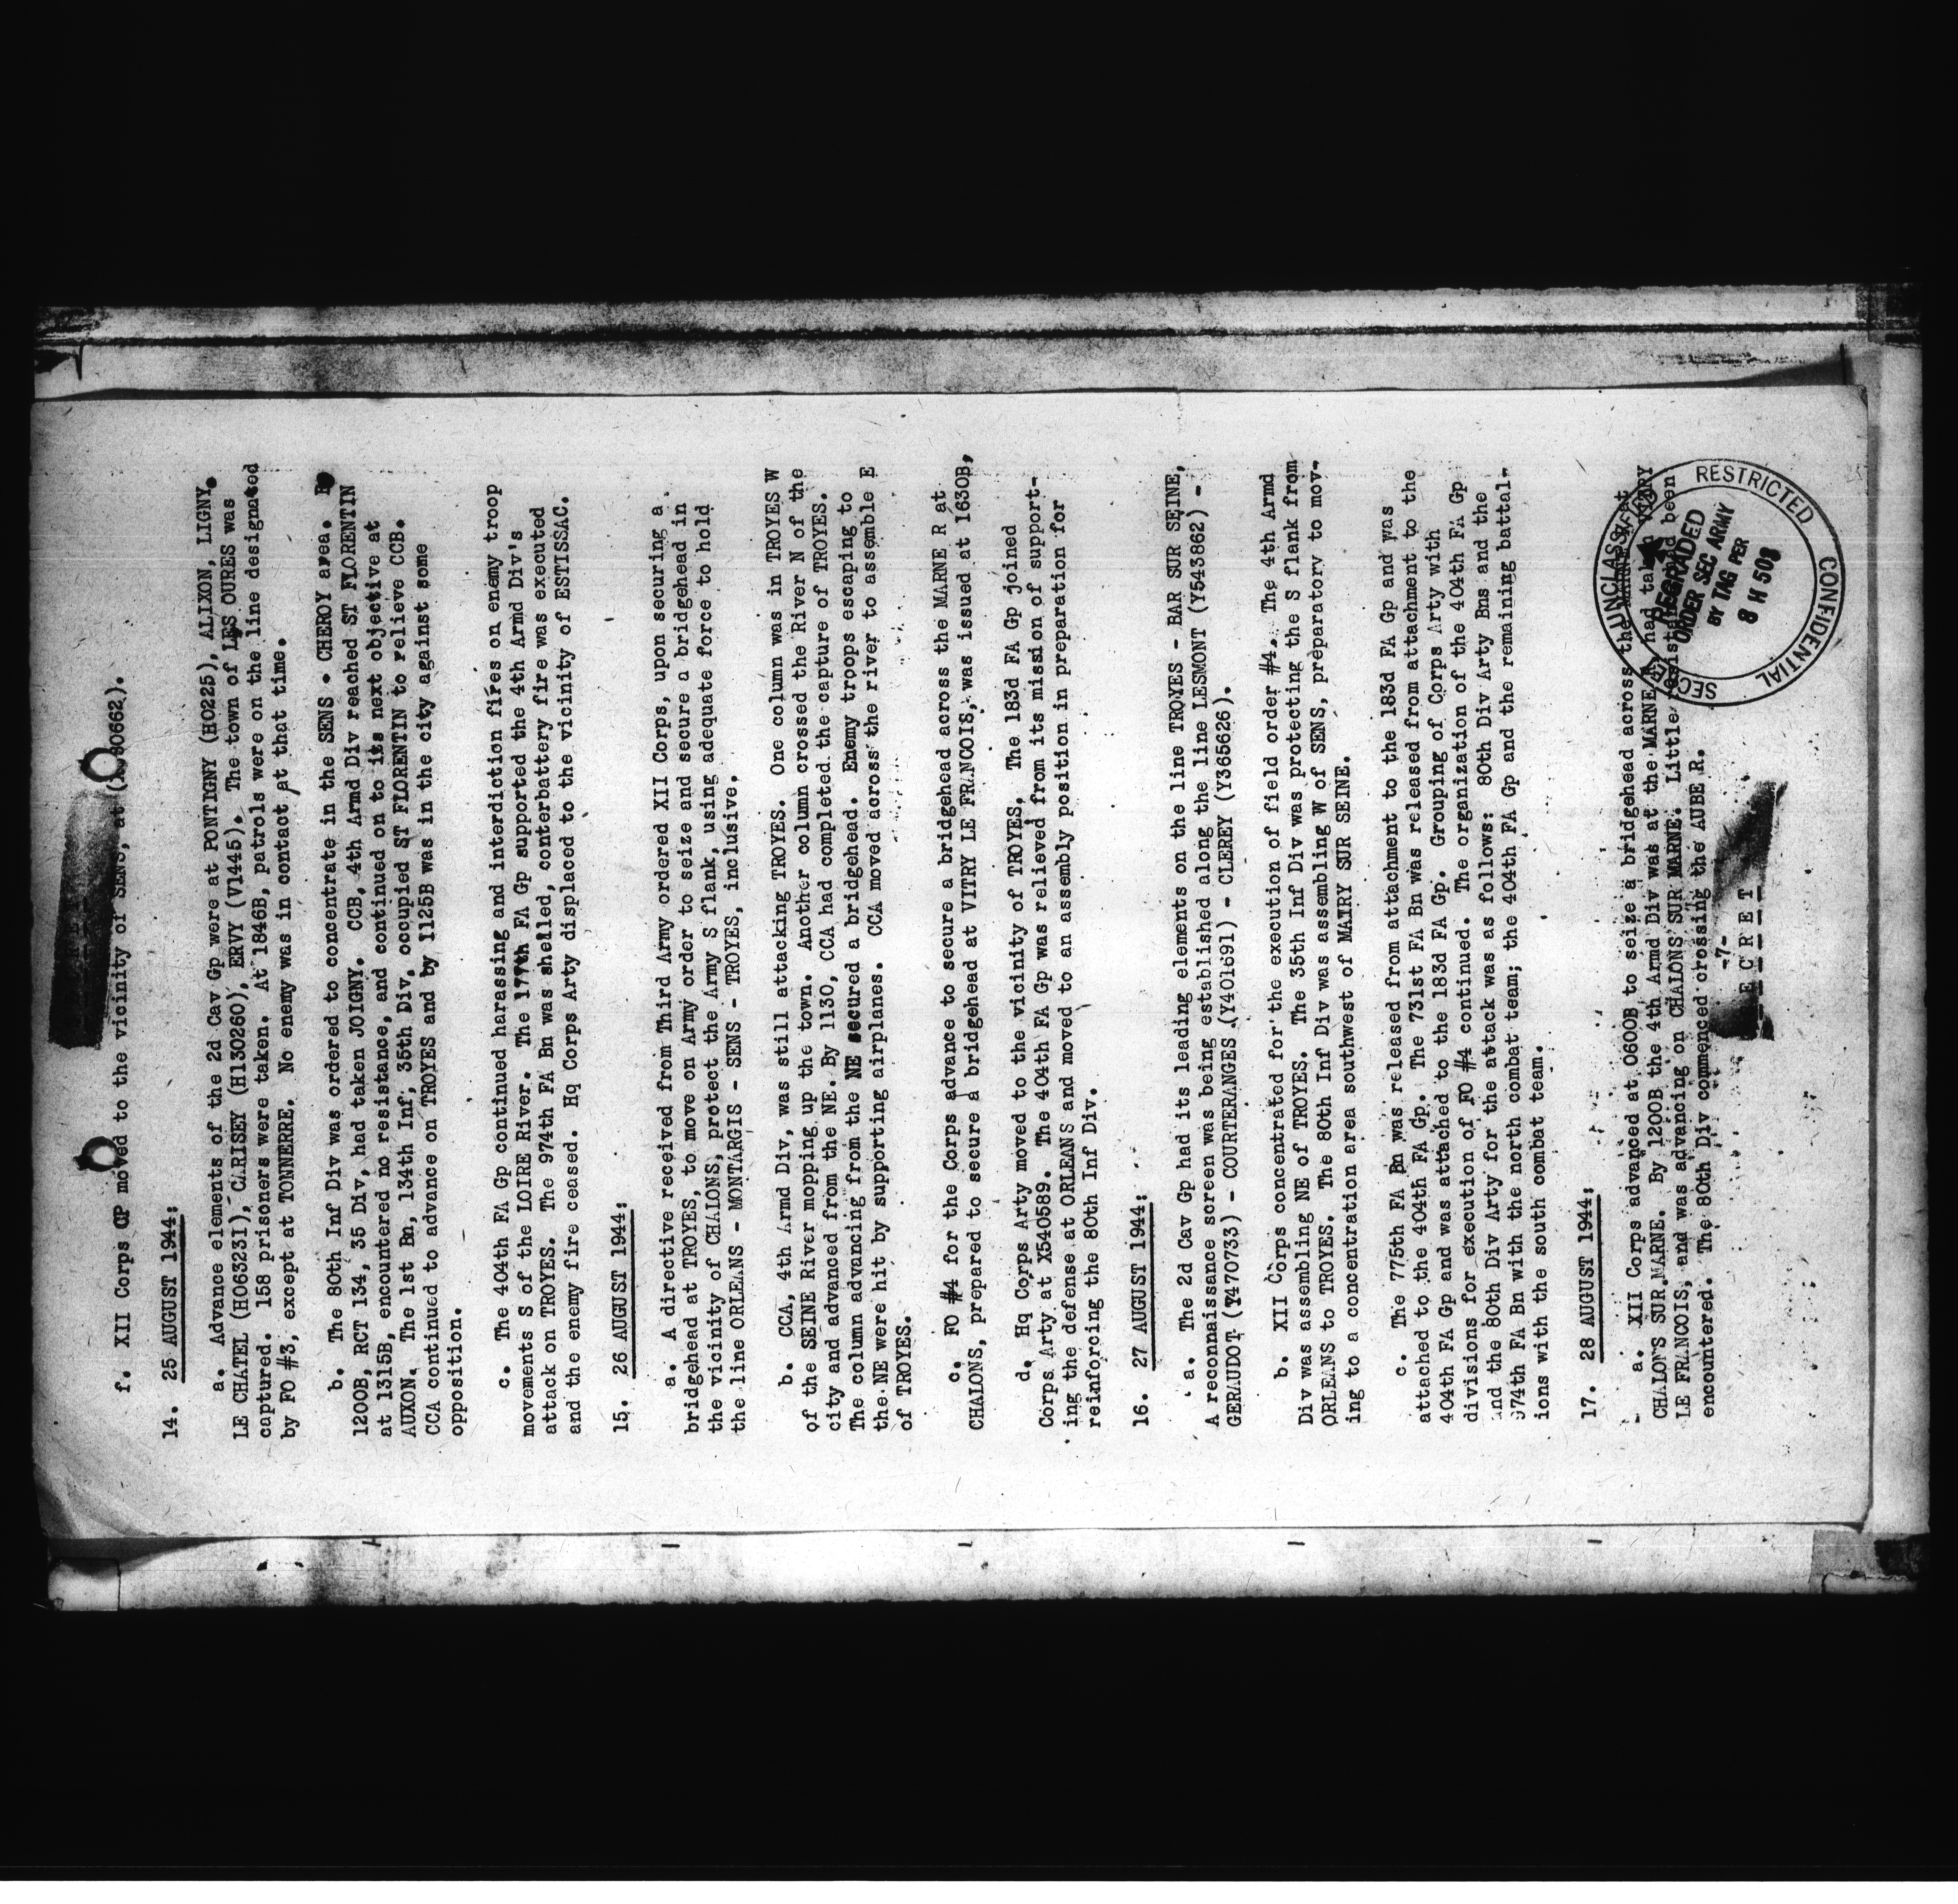 f. XII Corps CP moved to the vicinity of SENS, at
14. 25 AUGUST 1944:
a. Advance elements of the 2d Cav Gp were at PONTIGNY (H0225), ALIXON, LIGNY,
LE CHATEL (H06331), CARISEY (H130260), ERVY (V1445). The town of LES OURES was
captured. 158 prisoners were taken. At 1846B, patrols were on the line designated
by FO #3, except at TONNERRE. No enemy was in contact at that time.
b. The 80th Inf Div was ordered to concentrate in the SENS - CHEROY area. By
1200B, RCT 134, 35 Div, had taken JOIGNY. CCB, 4th Armd Div reached ST FLORENTIN
at 1315B, encountered no resistance, and continued on to its next objective at
AUXON. The 1st Bn, 134th Inf, 35th Div, occupied ST FLORENTIN to relieve CCB.
CCA continued to advance on TROYES and by 1125B was in the city against some
opposition.
c. The 404th FA Gp continued harassing and interdiction fires on enemy troop
movements S of the LOIRE River. The 177th FA Gp supported the 4th Armd Div's
attack on TROYES. The 974th FA Bn was shelled, counterbattery fire was executed
and the enemy fire ceased. Hq Corps Arty displaced to the vicinity of ESTISSAC.
15. 26 AUGUST 1944:
a. A directive received from Third Army ordered XII Corps, upon securing a
bridgehead at TROYES, to move on Army order to seize and secure a bridgehead in
the vicinity of CHALONS, protect the Army S flank, using adequate force to hold
the line ORLEANS - MONTARGIS - SENS - TROYES, inclusive.
b. CCA, 4th Armd Div, was still attacking TROYES. One column was in TROYES W
of the SEINE River mopping up the town. Another column crossed the River N of the
city and advanced from the NE. By 1130, CCA had completed the capture of TROYES.
The column advancing from the NE secured a bridgehead. Enemy troops escaping to
the NE were hit by supporting airplanes. CCA moved across the river to assemble E
of TROYES.
c. FO #4 for the Corps advance to secure a bridgehead across the MARNE R at
CHALONS, prepared to secure a bridgehead at VITRY LE FRANCOIS, was issued at 1630B,
d. Hq Corps Arty moved to the vicinity of TROYES. The 183d FA Gp joined
Corps Arty at X540589. The 404th FA Gp was relieved from its mission of support-
ing the defense at ORLEANS and moved to an assembly position in preparation for
reinforcing the 80th Inf Div.
16. 27 AUGUST 1944:
a. The 2d Cav Gp had its leading elements on the line TROYES - BAR SUR SEINE,
A reconnaissance screen was being established along the line LESMONT (Y543862) -
GERAUDOT (Y470733) - COURTERANGES (Y401691) - CLEREY (Y365626).
b. XII Corps concentrated for the execution of field order #4. The 4th Armd
Div was assembling NE of TROYES. The 35th Inf Div was protecting the S flank from
ORLEANS to TROYES. The 80th Inf Div was assembling W of SENS, preparatory to mov-
ing to a concentration area southwest of MAIRY SUR SEINE.
c. The 775th FA Bn was released from attachment to the 183d FA Gp and was
attached to the 404th FA Gp. The 731st FA Bn was released from attachment to the
404th FA Gp and was attached to the 183d FA Gp. Grouping of Corps Arty with
divisions for execution of FO #4 continued. The organization of the 404th FA Gp
and the 80th Div Arty for the attack was as follows: 80th Div Arty Bns and the
974th FA Bn with the north combat team; the 404th FA Gp and the remaining battal-
ions with the south combat team.
17. 28 AUGUST 1944:
a. XII Corps advanced at 0600B to seize a bridgehead across the MARNE R at
CHALONS SUR MARNE. By 1200B the 4th Armd Div was at the MARNE R, had taken VITRY
LE FRANCOIS, and was advancing on CHALONS SUR MARNE. Little resistance had been
encountered. The 80th Div commenced crossing the AUBE R.
-7-
SECRET
UNCLASSIFIED
RESTRICTED
CONFIDENTIAL
SECRET
REGRADED
ORDER SEC ARMY
BY TAG PER
8 H 508